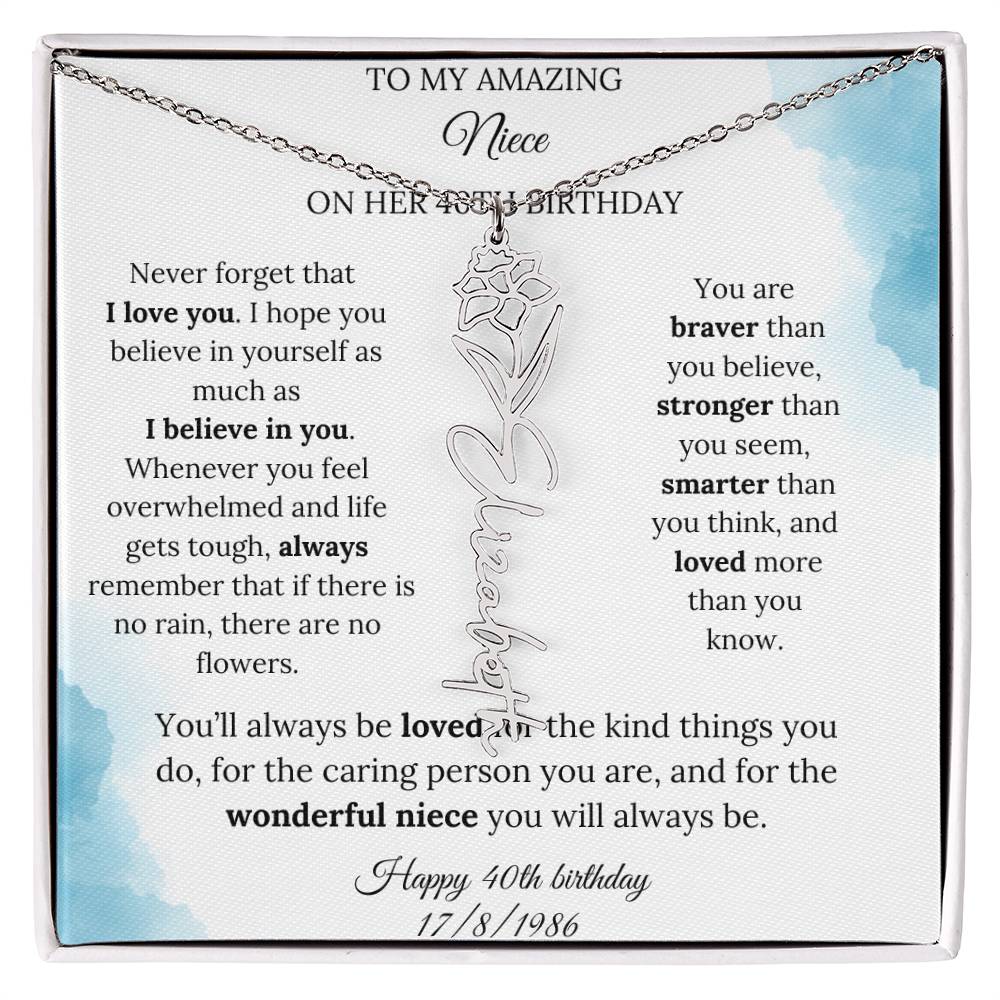 TO MY AMAZING
Niece
ON HER 40TH BIRTHDAY
Never forget that
I love you. I hope you
believe in yourself as
much as
I believe in you.
Whenever you feel
overwhelmed and life
gets tough, always
remember that if there is
no rain, there are no
flowers.
Elizabeth
You are
braver than
you believe,
stronger than
you seem,
smarter than
you think, and
loved more
than you
know.
You’ll always be loved for the kind things you
do, for the caring person you are, and for the
wonderful niece you will always be.
Happy 40th birthday
17/8/1986